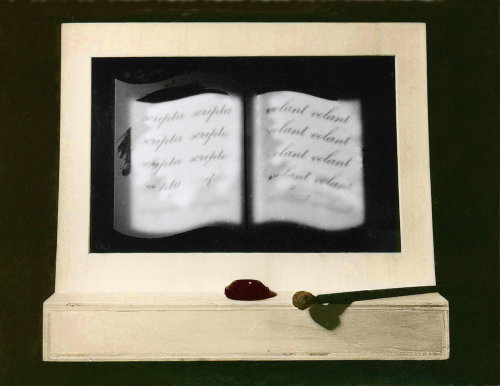 scripta scripta
scripta scripta
scripta scripta
volant volant
volant volant
volant volant
volant volant